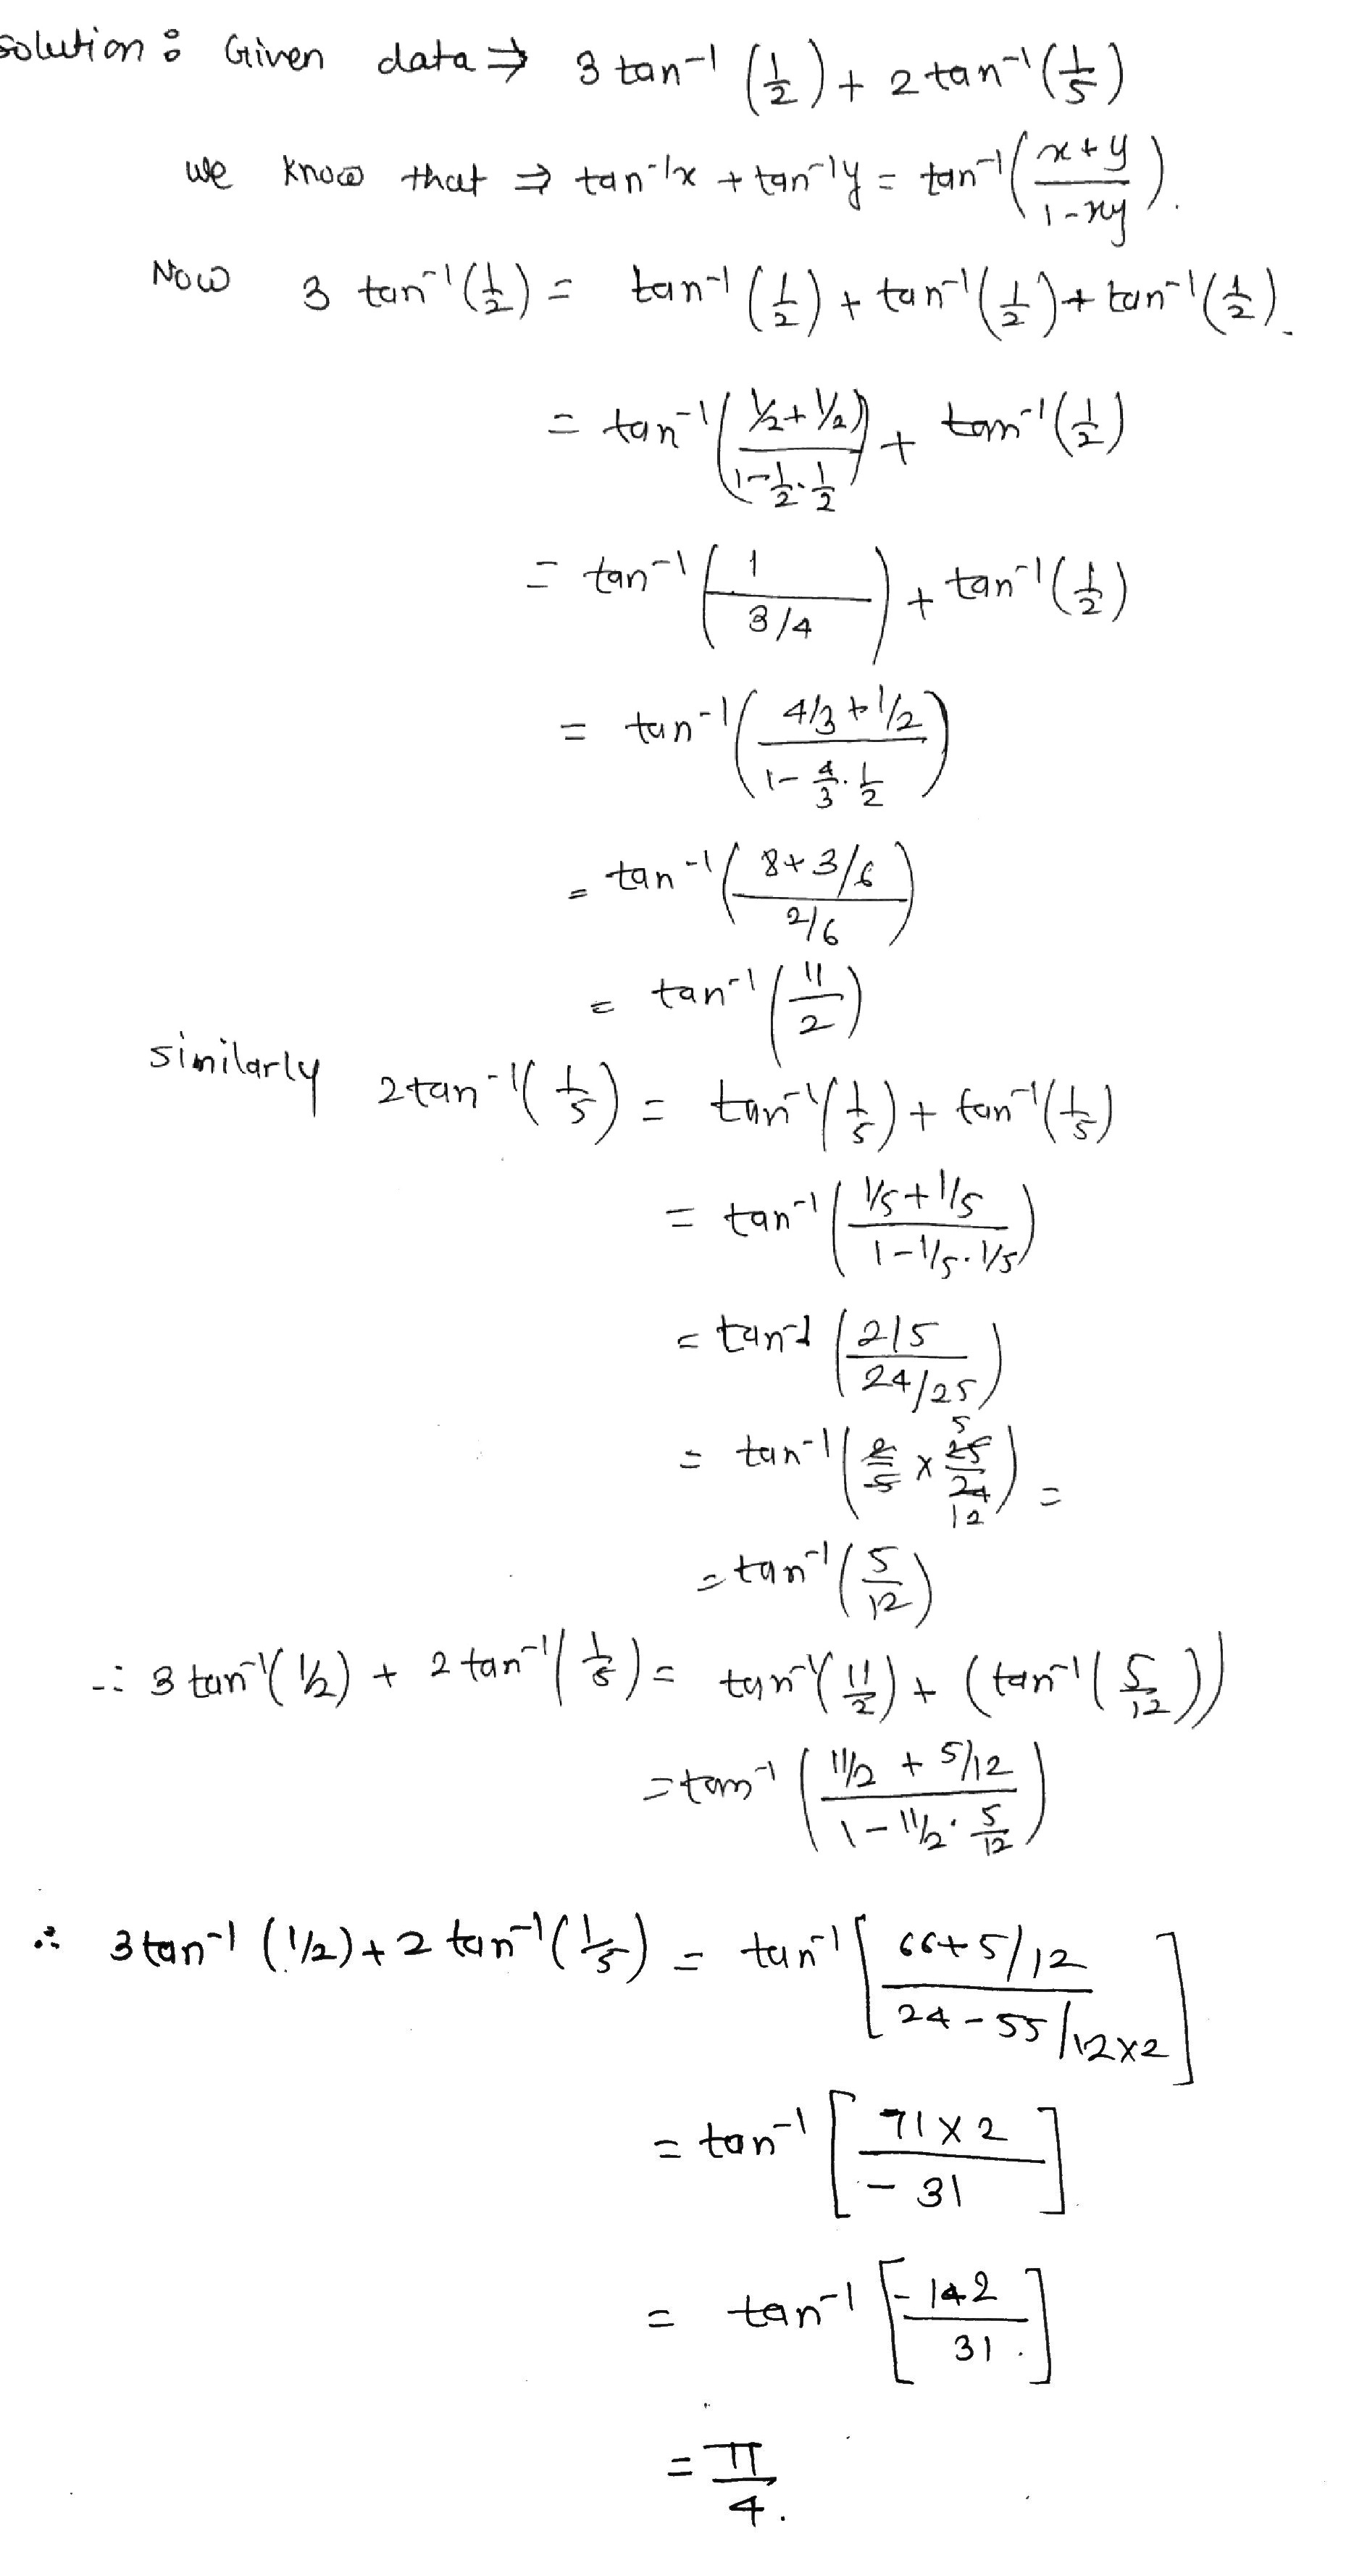 Solution : Given data ⇒ 3 tan⁻¹ (1/2) + 2 tan⁻¹ (1/5)
we know that ⇒ tan⁻¹x + tan⁻¹y = tan⁻¹ ( x+y / 1-xy ).
Now 3 tan⁻¹ (1/2) = tan⁻¹ (1/2) + tan⁻¹ (1/2) + tan⁻¹ (1/2).
= tan⁻¹ ( 1/2 + 1/2 / 1 - 1/2 · 1/2 ) + tan⁻¹ (1/2)
= tan⁻¹ ( 1 / 3/4 ) + tan⁻¹ (1/2)
= tan⁻¹ ( 4/3 + 1/2 / 1 - 4/3 · 1/2 )
= tan⁻¹ ( 8+3/6 / 2/6 )
= tan⁻¹ ( 11/2 )
similarly 2 tan⁻¹ (1/5) = tan⁻¹ (1/5) + tan⁻¹ (1/5)
= tan⁻¹ ( 1/5 + 1/5 / 1 - 1/5 · 1/5 )
= tan⁻¹ ( 2/5 / 24/25 )
= tan⁻¹ ( 2/5 × 25/24 5 12 ) =
= tan⁻¹ ( 5/12 )
∴ 3 tan⁻¹ (1/2) + 2 tan⁻¹ (1/5) = tan⁻¹ (11/2) + (tan⁻¹ (5/12))
= tan⁻¹ ( 11/2 + 5/12 / 1 - 11/2 · 5/12 )
∴ 3 tan⁻¹ (1/2) + 2 tan⁻¹ (1/5) = tan⁻¹ [ 66+5/12 / 24-55/12×2 ]
= tan⁻¹ [ 71×2 / -31 ]
= tan⁻¹ [ -142 / 31 . ]
= π/4.